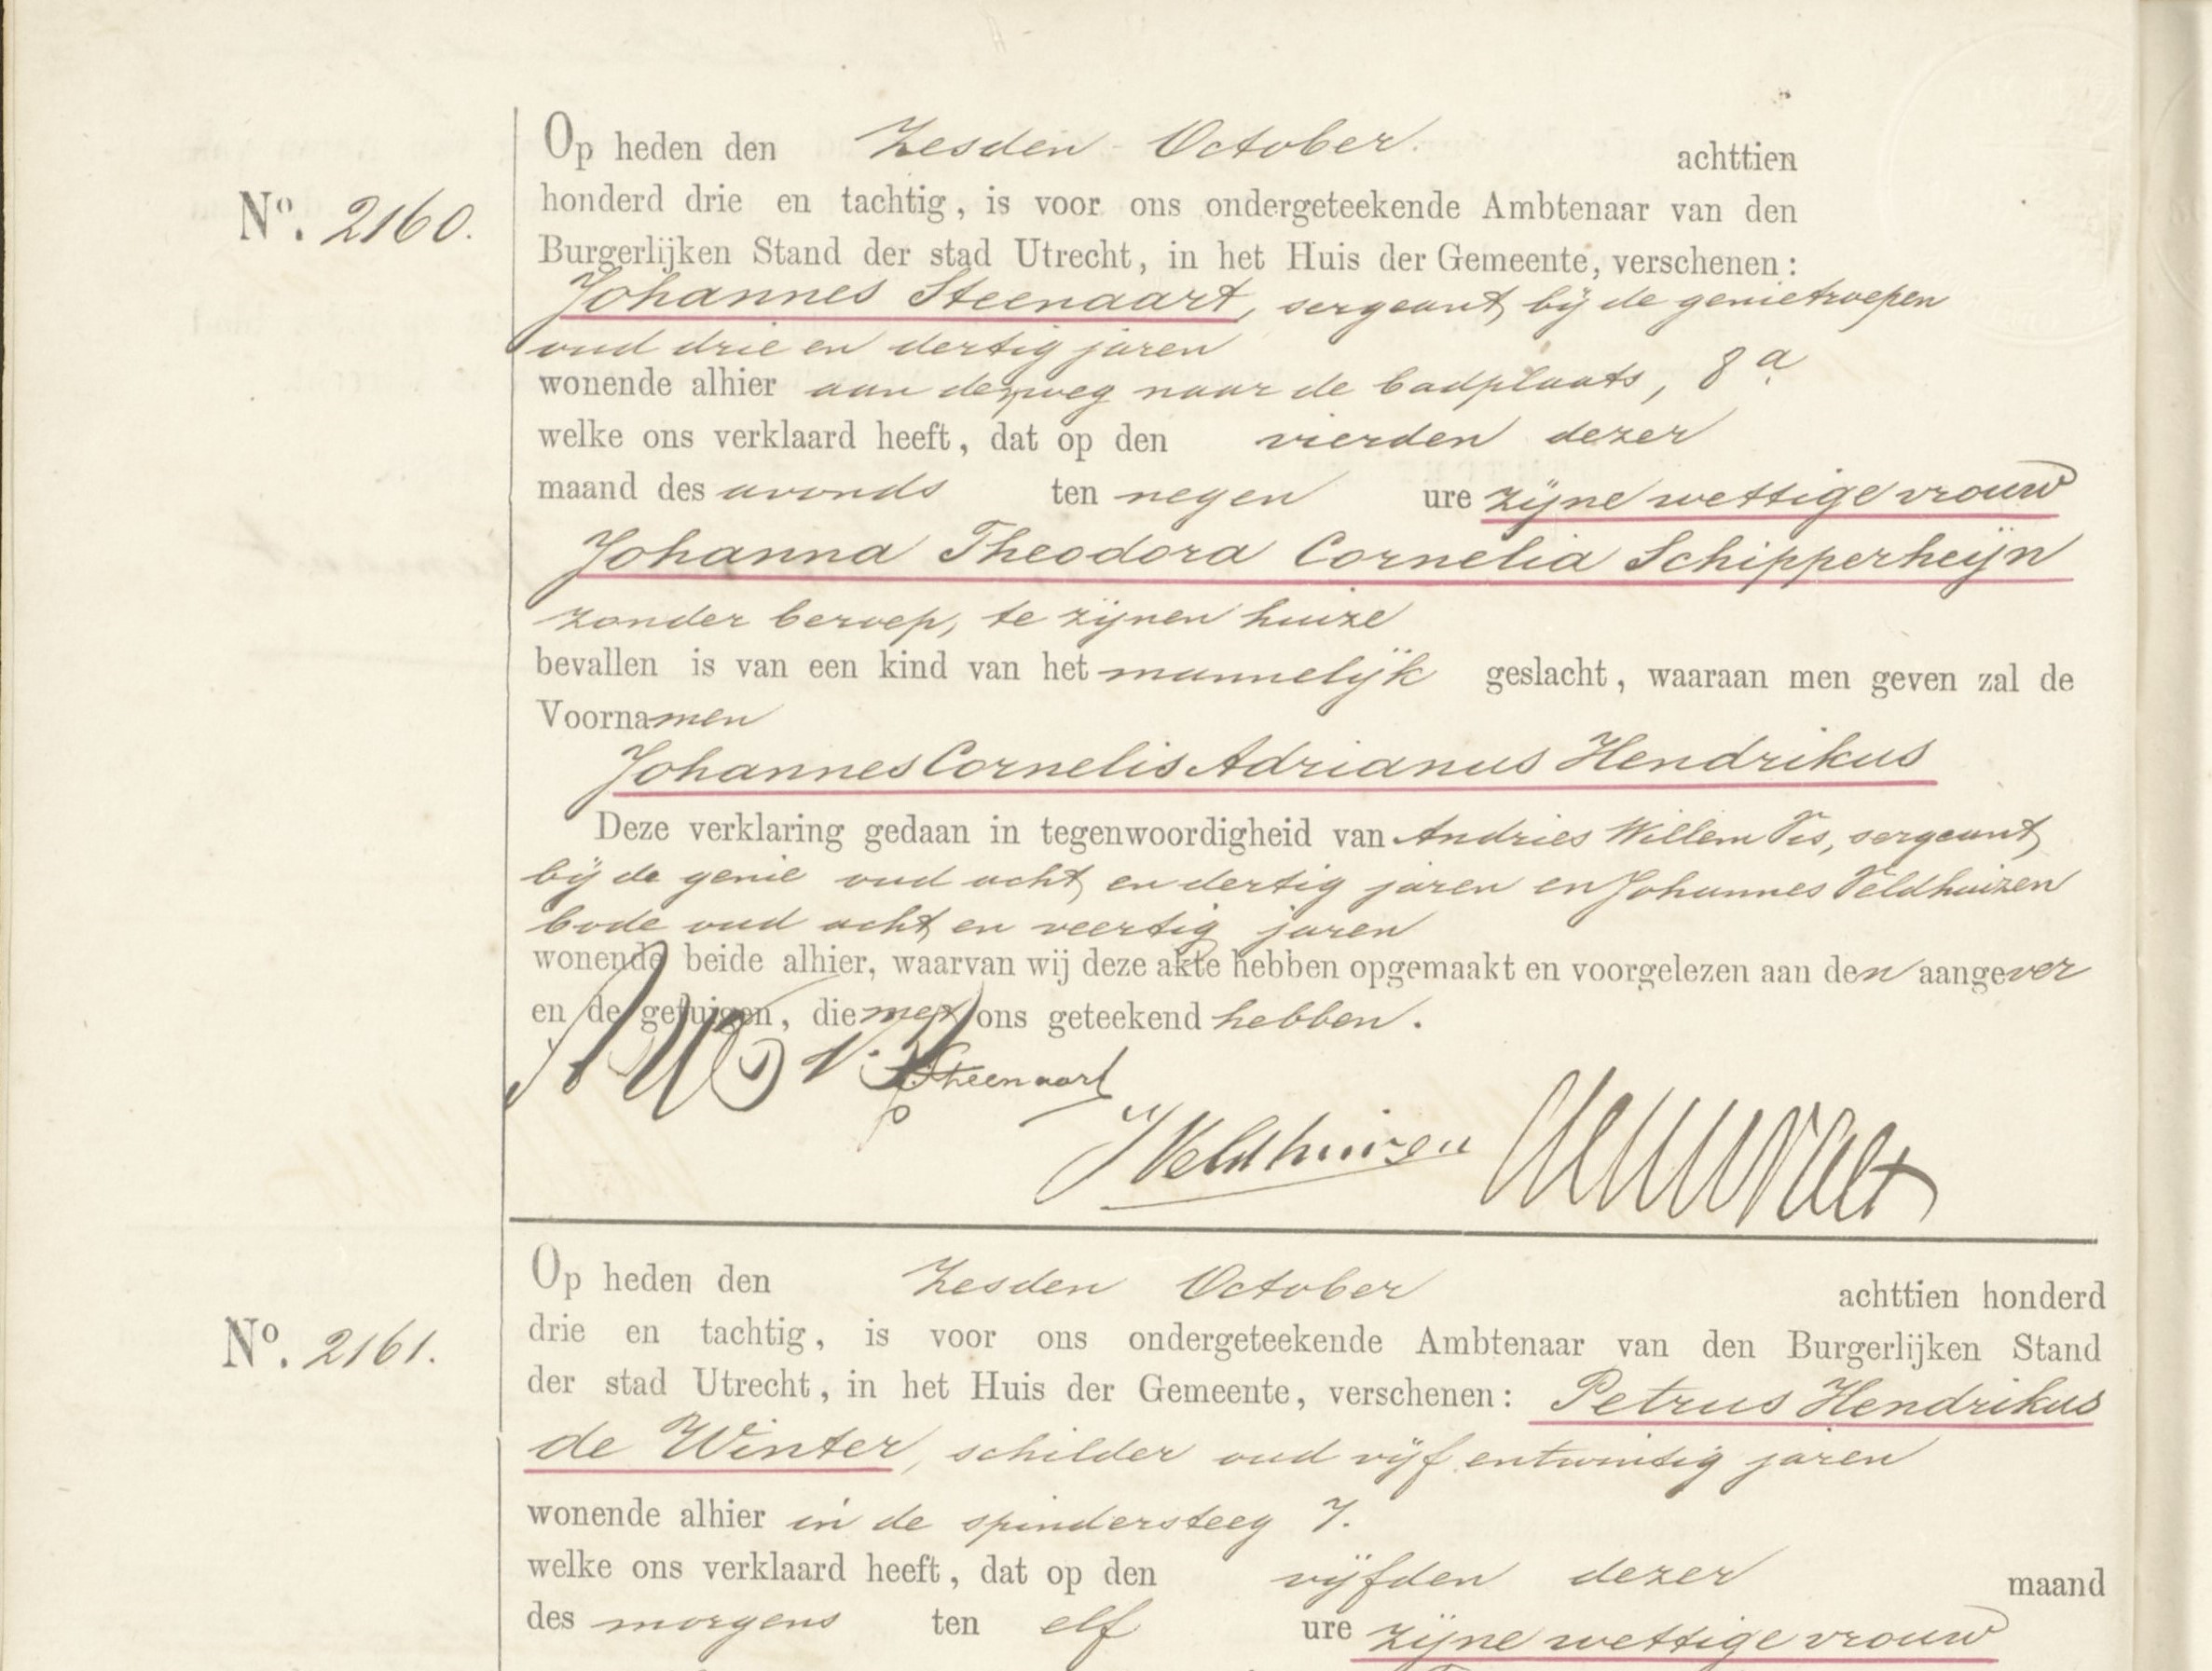 Op heden den Zesden October. achttien
Nº. 2160.
honderd drie en tachtig, is voor ons ondergeteekende Ambtenaar van den
Burgerlijken Stand der stad Utrecht, in het Huis der Gemeente, verschenen:
Johannes Steenaart, sergeant bij de genietroepen
oud drie en dertig jaren
wonende alhier aan den weg naar de badplaats, 8 a
welke ons verklaard heeft, dat op den vierden dezer
maand des avonds ten negen ure zijne wettige vrouw
Johanna Theodora Cornelia Schipperheijn
zonder beroep, te zijnen huize
bevallen is van een kind van het mannelijk geslacht, waaraan men geven zal de
Voornamen
Johannes Cornelis Adrianus Hendrikus
Deze verklaring gedaan in tegenwoordigheid van Andries Willem Vis, sergeant
bij de genie oud acht en dertig jaren en Johannes Veldhuizen
bode oud acht en veertig jaren
wonende beide alhier, waarvan wij deze akte hebben opgemaakt en voorgelezen aan den aangever
en de getuigen, die met ons geteekend hebben.
Steenaart
J Veldhuizen
Op heden den Zesden October achttien honderd
Nº. 2161.
drie en tachtig, is voor ons ondergeteekende Ambtenaar van den Burgerlijken Stand
der stad Utrecht, in het Huis der Gemeente, verschenen: Petrus Hendrikus
de Winter, schilder oud vijf entwintig jaren
wonende alhier in de spindersteeg 7.
welke ons verklaard heeft, dat op den vijfden dezer maand
des morgens ten elf ure zijne wettige vrouw